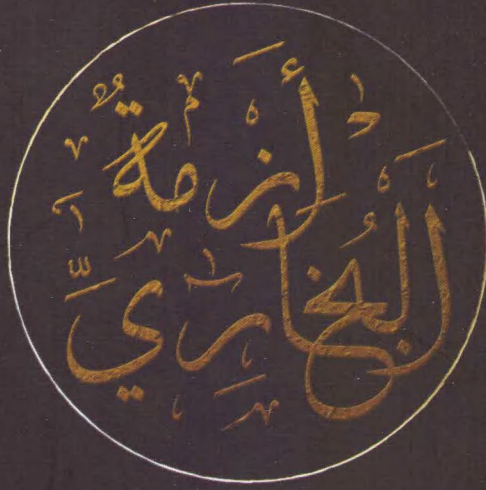 أَزمةُ
البُخاريّ